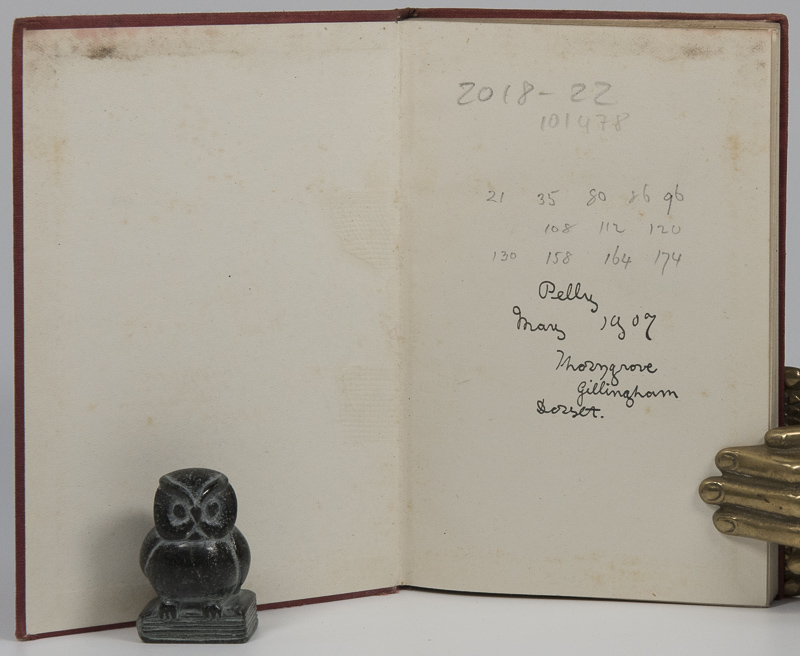 2018-22
101478
21 35 80 86 96
108 112 120
130 158 164 174
Pelly
May 1907
Thorngrove
Gillingham
Dorset.